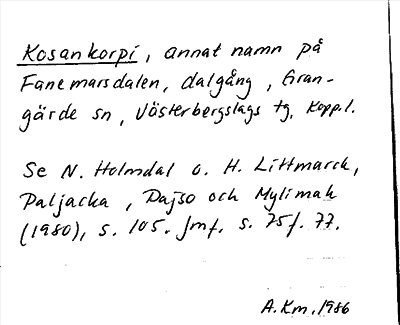 Kosankorpi, annat namn på
Fanemarsdalen, dalgång, Gran-
gärde sn, Västerbergslags tg, Kopp.l.
Se N. Holmdal o. H. Littmarck,
Paljacka, Pajso och Mylimak
(1980), s. 105. Jmf. s. 75f. 77.
A.Km, 1986